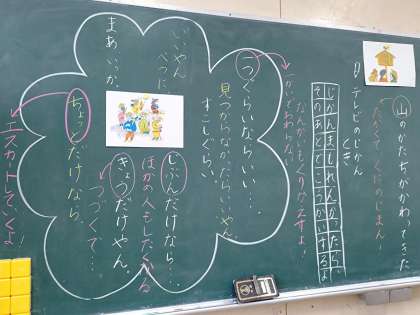 山のかたちがかわってきた
たくさんとったのじまん
テレビのじかん
とき
じかんまもれんかったら、
そのあとでこうかいするよ
なんかいもくりかえすよ!
一かいでおわらない
一つぐらいならいい…。
見つからなかったらいいやん。
すこしぐらい。
じぶんだけなら…。
ほかの人もしだくいる
きょうだけやん。
つづくで…。
いいやん
べつに。
まあいっか。
ちょっとだけなら。
エスカレートしていくよ!